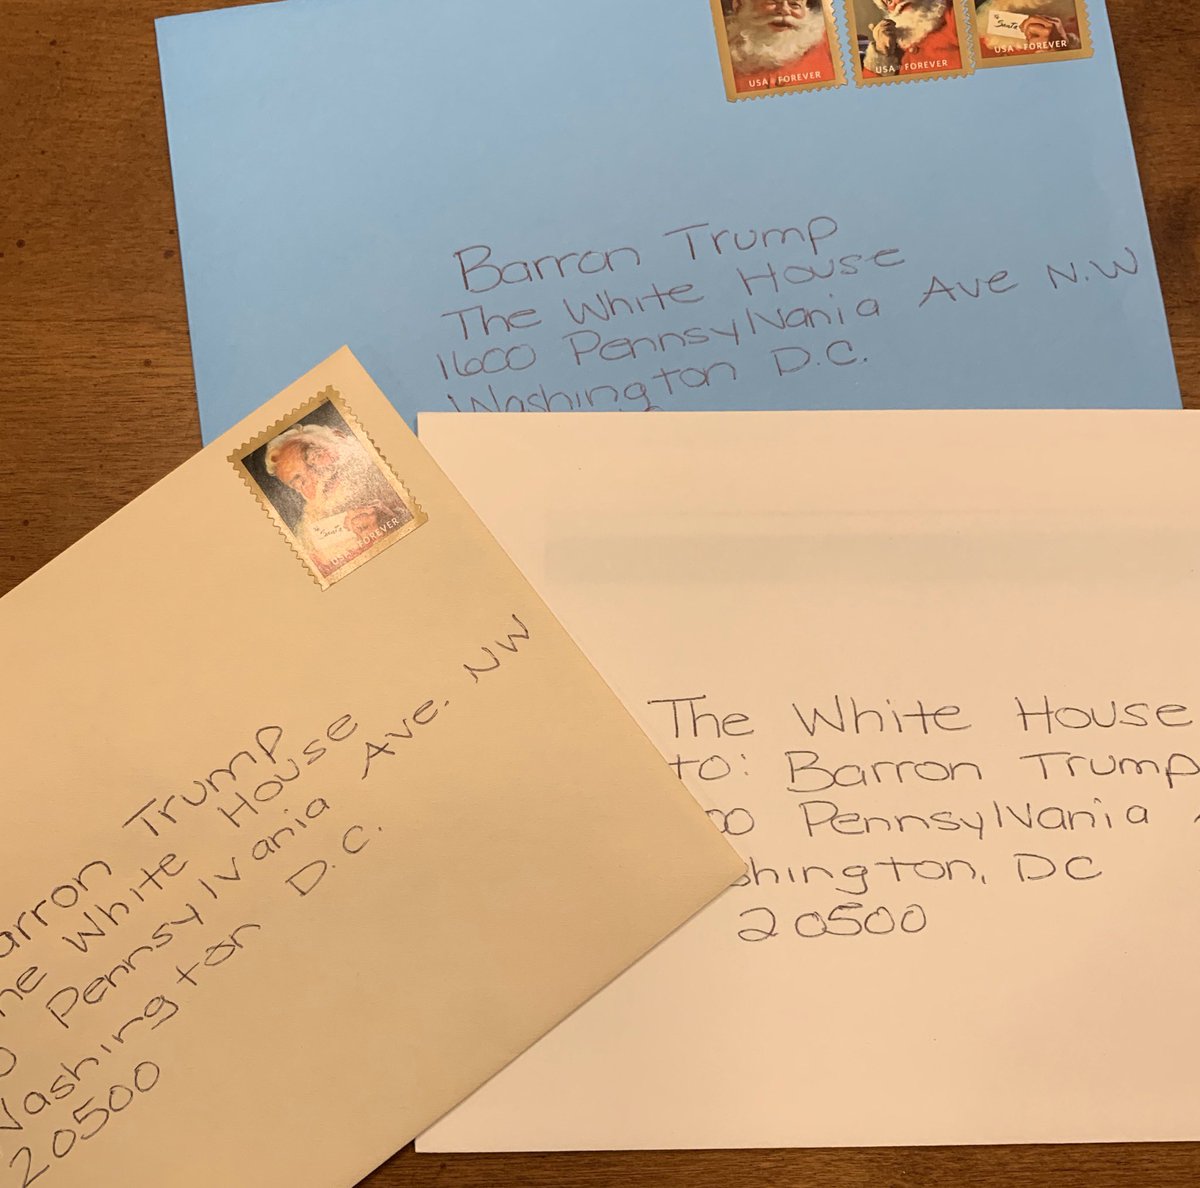 USA FOREVER
USA FOREVER
To Santa
USA FOREVER
Barron Trump
The White House
1600 Pennsylvania Ave N.W
Washington D.C.
To Santa
USA FOREVER
arron Trump
he White House
0 Pennsylvania Ave. NW
Washington D.C.
20500
The White House
to: Barron Trump
00 Pennsylvania
shington, DC
20500